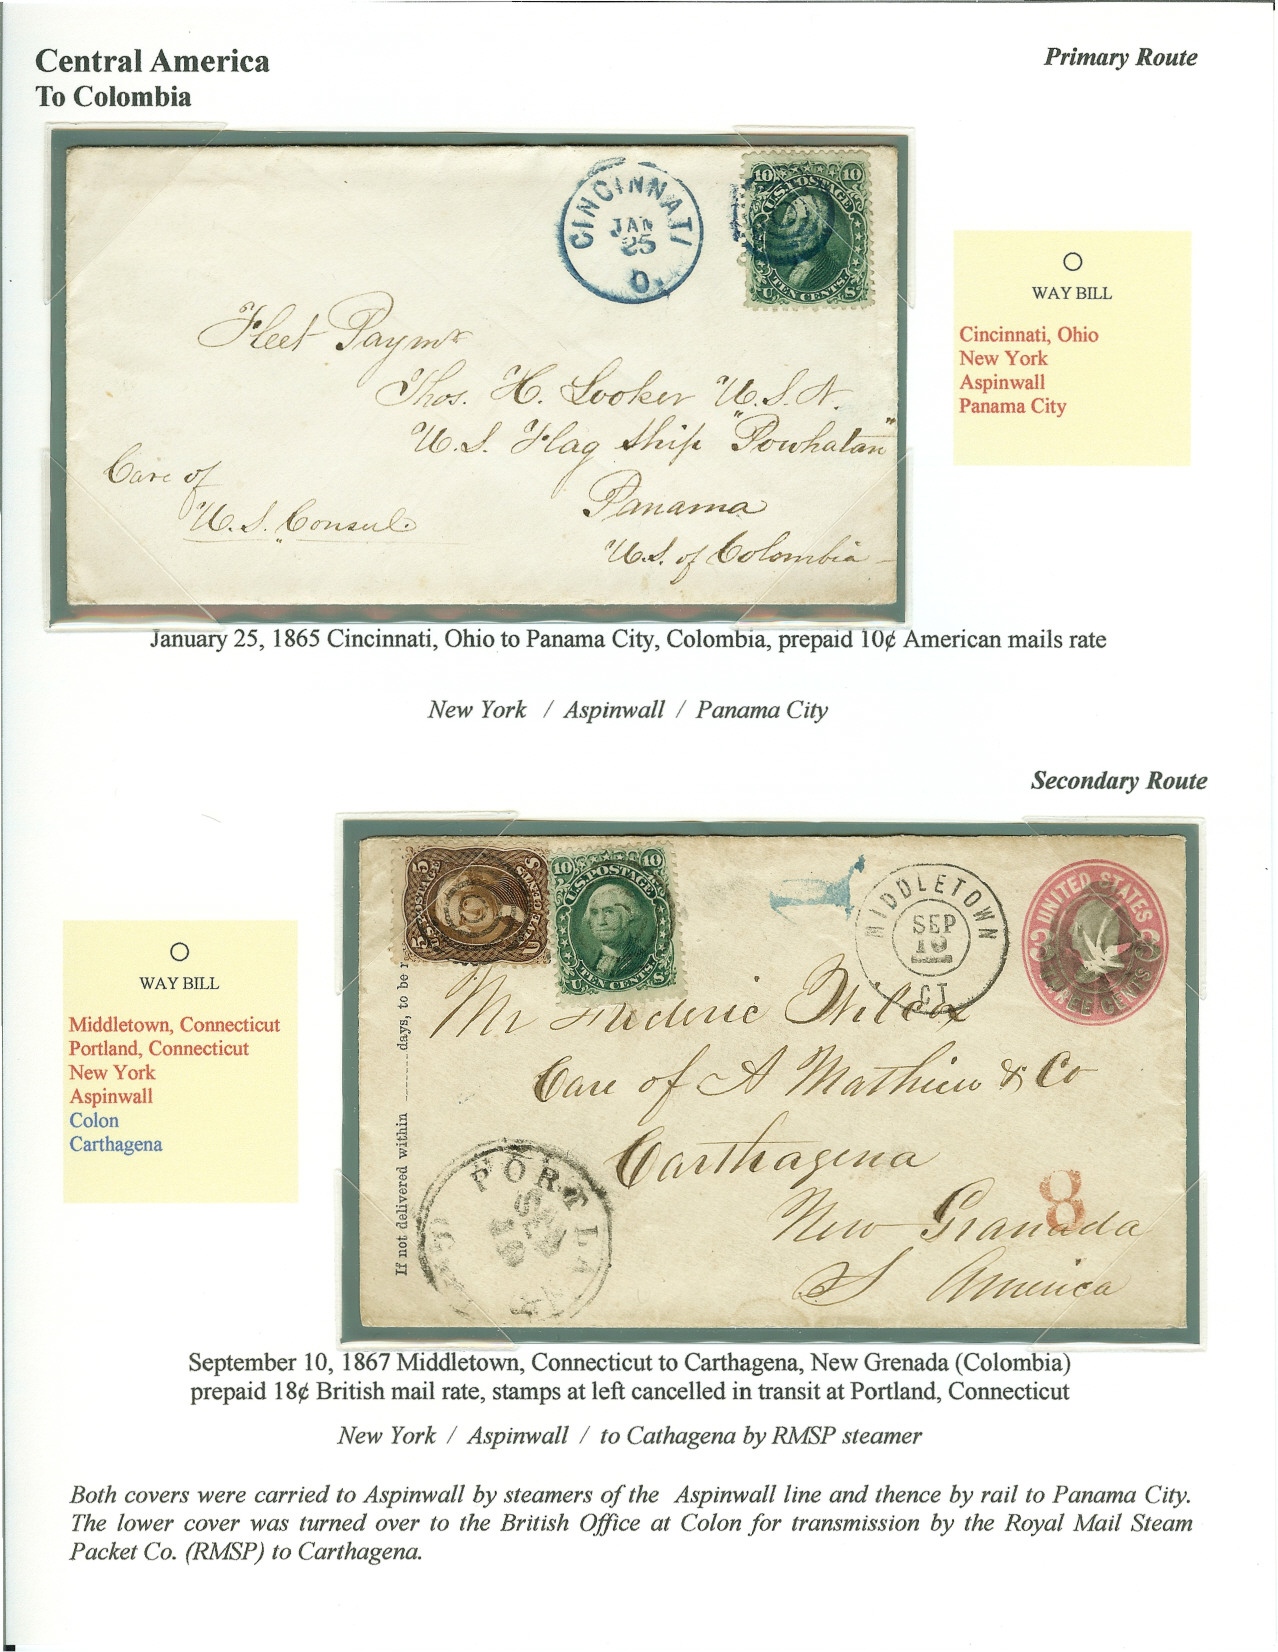 Central America
To Colombia
Primary Route
CINCINNATI
JAN
25
O.
10 10
U.S. POSTAGE
TEN CENTS
U S
Fleet Paymr
Thos. H. Looker U.S.N.
U.S. Flag Ship "Powhatan"
Care of
U.S. Consul.
Panama
U.S. of Colombia
WAY BILL
Cincinnati, Ohio
New York
Aspinwall
Panama City
January 25, 1865 Cincinnati, Ohio to Panama City, Colombia, prepaid 10¢ American mails rate
New York / Aspinwall / Panama City
Secondary Route
WAY BILL
Middletown, Connecticut
Portland, Connecticut
New York
Aspinwall
Colon
Carthagena
10 10
U.S. POSTAGE
TEN CENTS
U S
MIDDLETOWN
SEP
10
CT
UNITED STATES
THREE CENTS
3 3
If not delivered within ...... days, to be r
Mr Frederic Wilcox
Care of A Mathieu & Co
Carthagena
New Granada
S America
8
PORTLAND
SEP
10
September 10, 1867 Middletown, Connecticut to Carthagena, New Grenada (Colombia)
prepaid 18¢ British mail rate, stamps at left cancelled in transit at Portland, Connecticut
New York / Aspinwall / to Cathagena by RMSP steamer
Both covers were carried to Aspinwall by steamers of the Aspinwall line and thence by rail to Panama City.
The lower cover was turned over to the British Office at Colon for transmission by the Royal Mail Steam
Packet Co. (RMSP) to Carthagena.